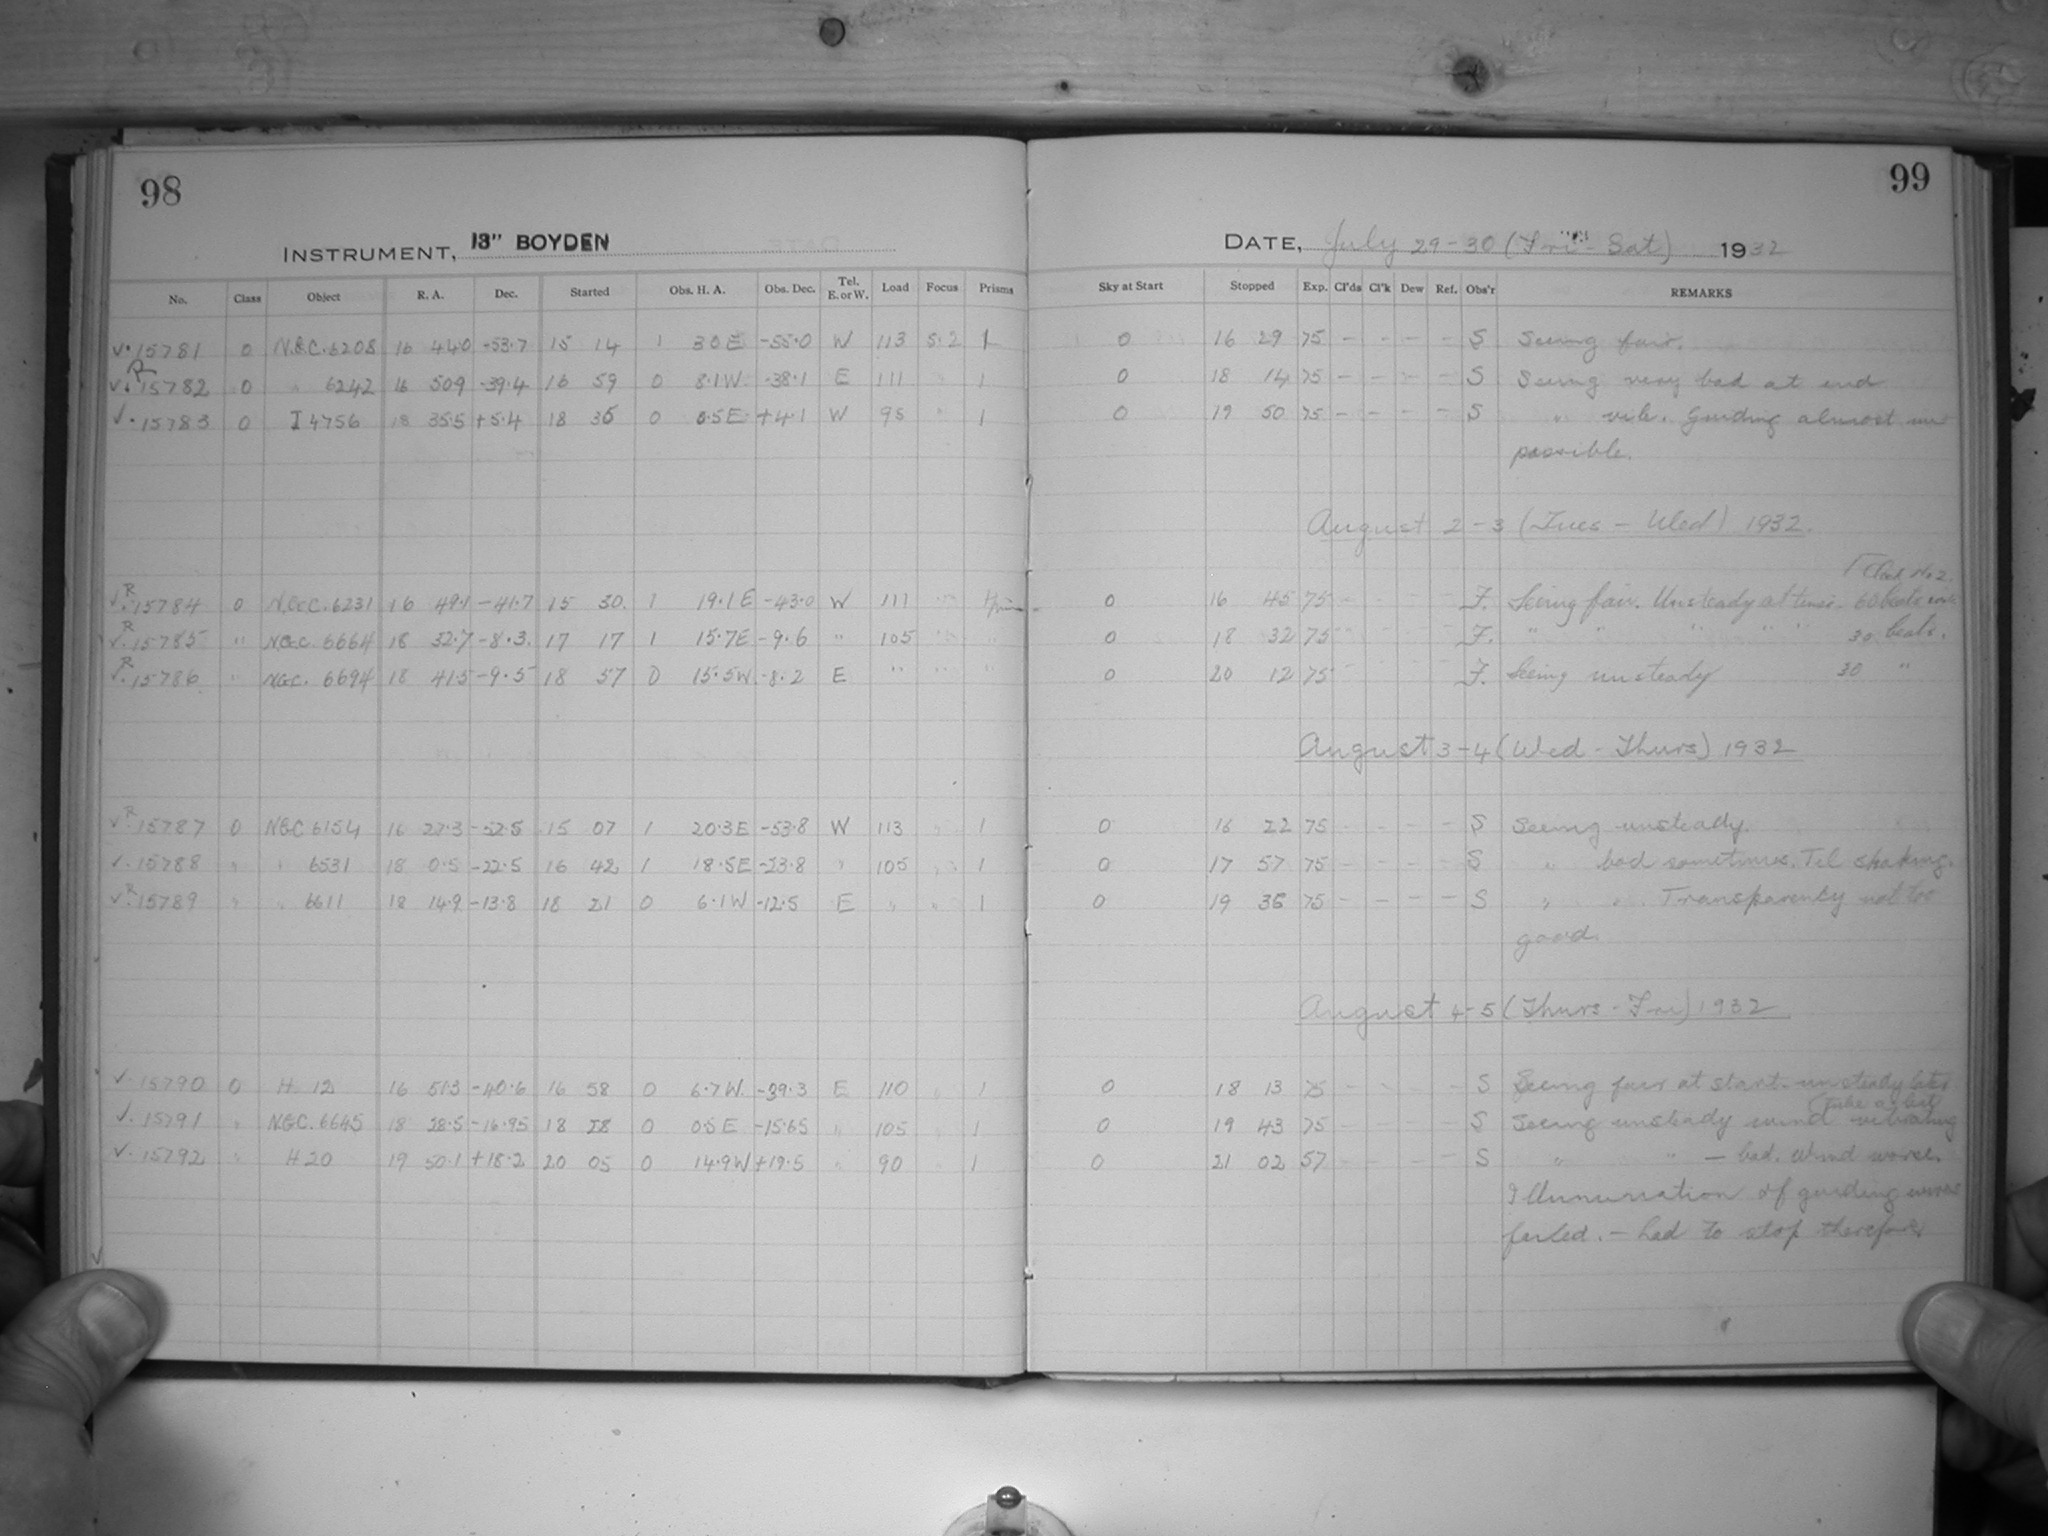 98
99
INSTRUMENT, 13" BOYDEN
DATE, July 29-30 (Fri - Sat) 1932
No. Class Object R. A. Dec. Started Obs. H. A. Obs. Dec. Tel. E. or W. Load Focus Prisms Sky at Start Stopped Exp. Cl'ds Cl'k Dew Ref. Obs'r REMARKS
✓. 15781 0 N.G.C. 6208 16 44.0 -53.7 15 14 1 30 E -55.0 W 113 5.2 1 0 16 29 75 - - - - S Seeing fair.
✓. R 15782 0 " 6242 16 50.9 -39.4 16 59 0 8.1 W. -38.1 E 111 " 1 0 18 14 75 - - - - S Seeing very bad at end
✓. 15783 0 I 4756 18 35.5 +5.4 18 35 0 0.5 E +4.1 W 95 " 1 0 19 50 75 - - - - S " vile. Guiding almost im
possible.
August 2-3 (Tues - Wed) 1932.
Clock No 2.
✓. R 15784 0 N.G.C. 6231 16 49.1 -41.7 15 30. 1 19.1 E -43.0 W 111 " 0 16 45 75 - - - - F. Seeing fair. Unsteady at times. 60 beats
✓. R 15785 " N.G.C. 6664 18 32.7 -8.3. 17 17 1 15.7 E -9.6 " 105 " " 0 18 32 75 - - - - F. " " " " " 30 beats.
✓. R 15786 " N.G.C. 6694 18 41.5 -9.5 18 57 0 15.5 W -8.2 E " " " 0 20 12 75 - - - - F. Seeing unsteady 30 "
August 3-4 (Wed - Thurs) 1932
✓. R 15787 0 N.G.C 6154 16 27.3 -52.5 15 07 1 20.3 E -53.8 W 113 " 1 0 16 22 75 - - - - S Seeing unsteady.
✓. 15788 " " 6531 18 0.5 -22.5 16 42 1 18.5 E -23.8 " 105 " 1 0 17 57 75 - - - - S " bad sometimes. Tel shaking.
✓. R 15789 " " 6611 18 14.9 -13.8 18 21 0 6.1 W -12.5 E " " 1 0 19 36 75 - - - - S " " Transparency not too
good.
August 4-5 (Thurs - Fri) 1932
✓. 15790 0 H 12 16 51.3 -40.6 16 58 0 6.7 W. -39.3 E 110 " 1 0 18 13 75 - - - - S Seeing fair at start - unsteady later
tube a bit
✓. 15791 " N.G.C. 6645 18 28.5 -16.95 18 28 0 0.5 E -15.65 " 105 " 1 0 19 43 75 - - - - S Seeing unsteady wind vibrating
✓. 15792 " H 20 19 50.1 +18.2 20 05 0 14.9 W +19.5 " 90 " 1 0 21 02 57 - - - - S " " - bad. Wind worse.
Illumination of guiding wires
failed. - had to stop therefore